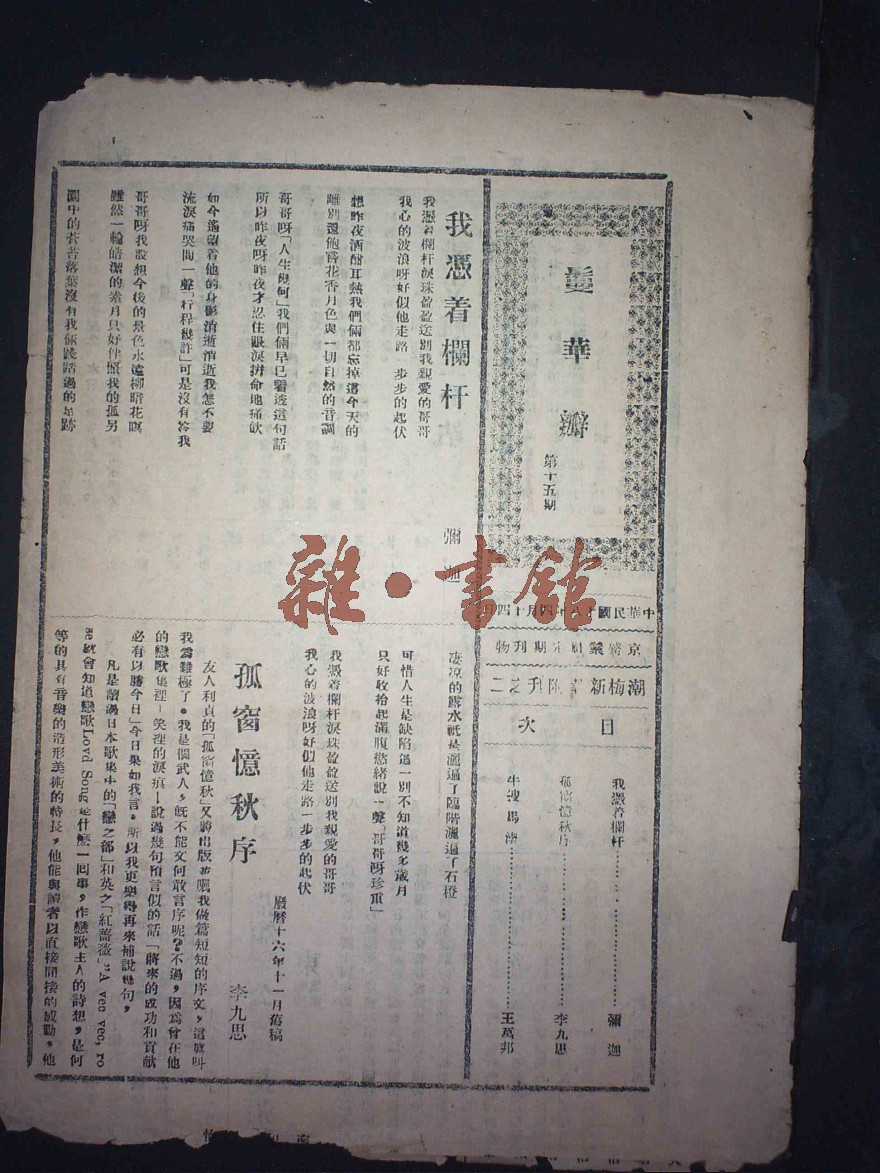 鬘華瓣
第十五期
中華民國十八年四月十四日
京滬叢刊定期刊物
潮梅新 附刊之二
目次
我憑着欄杆 彌迦
孤窗憶秋序 李九思
牛溲馬勃 王萬邦
我憑着欄杆
彌迦
我憑着欄杆淚珠盈盈送別我親愛的哥哥
我心的波浪呀好似他走路一步步的起伏
想昨夜酒酣耳熱我們倆都忘掉這今天的
離別還飽嘗花香月色與一切自然的音調
哥哥呀「人生幾何」我們倆早已看透這句話
所以昨夜呀昨夜才忍住眼淚拚命地痛飲
如今遙望着他的身影消逝消逝我怎不要
流淚痛哭問一聲「行程幾許」可是沒有答我
哥哥呀我設想今後的景色水遠柳暗花暝
雖然一輪皓潔的素月只好伴照我的孤另
園中的蒼苔落葉沒有我倆踐踏過的足跡
淒涼的露水祇是灑遍了臨階灑遍了石橙
可惜人生是缺陷這一別不知道幾多歲月
只好收拾起滿腹愁緒說一聲「哥哥呀珍重」
我憑着欄杆淚珠盈盈送別我親愛的哥哥
我心的波浪呀好似他走路一步步的起伏
廢曆十六年十一月舊稿
孤窗憶秋序
李九思
友人利貞的「孤窗憶秋」又將出版並囑我做篇短短的序文，這眞叫
我為難極了。我是個武人，旣不能文何敢言序呢？不過，因為曾在他
的戀歌集裡—笑裡的淚痕—說過幾句預言似的話「將來的成功和貢獻
必有以勝今日」今日果如我言。所以我更樂得再來補說幾句，
凡是讀過日本歌集中的「戀之部」和英之「紅薔薇」"A ved ved, ro
se就會知道戀歌Lovd Song是什麼一回事，作戀歌主人的詩想，是何
等的具有音樂的造形美術的特長，他能與讀者以直接間接的感動。他
雜·書館